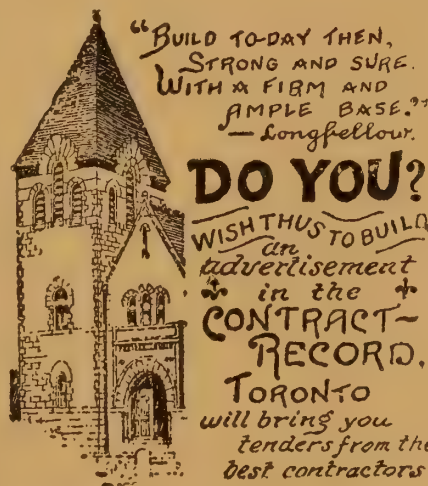 "BUILD TO-DAY THEN,
STRONG AND SURE.
WITH A FIRM AND
AMPLE BASE."
— Longfellow.
DO YOU?
WISH THUS TO BUILD
an
advertisement
in the
CONTRACT-
RECORD,
TORONTO
will bring you
tenders from the
best contractors